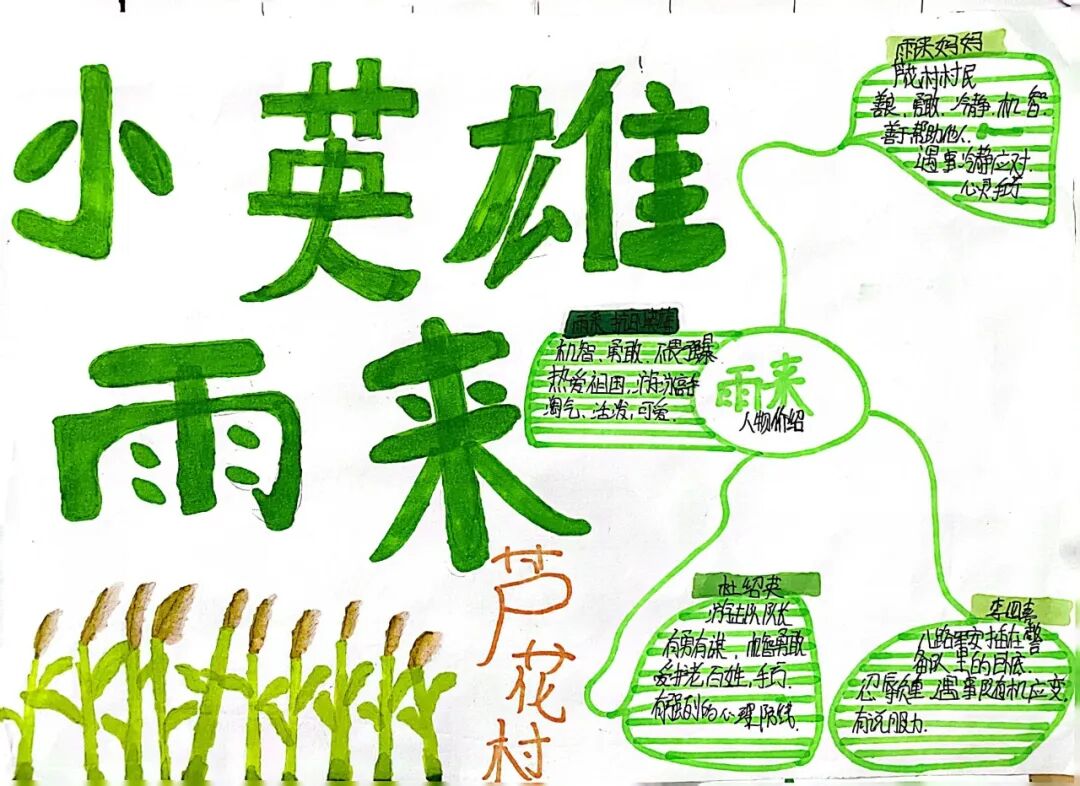 小英雄
雨来
芦花村
雨来妈妈
芦花村村民
善良、勇敢、冷静、机智
善于帮助他人、
遇事冷静应对
心灵手巧
雨来
机智、勇敢、不畏强暴
热爱祖国,游泳高手
淘气、活泼,可爱.
雨来
人物介绍
杜绍英
游击队队长
有勇有谋,机智勇敢
爱护老百姓,手巧.
有强烈的心理防线
李四喜
八路军安插在警
备队里的内底.
忍辱负重,遇事随机应变
有说服力.